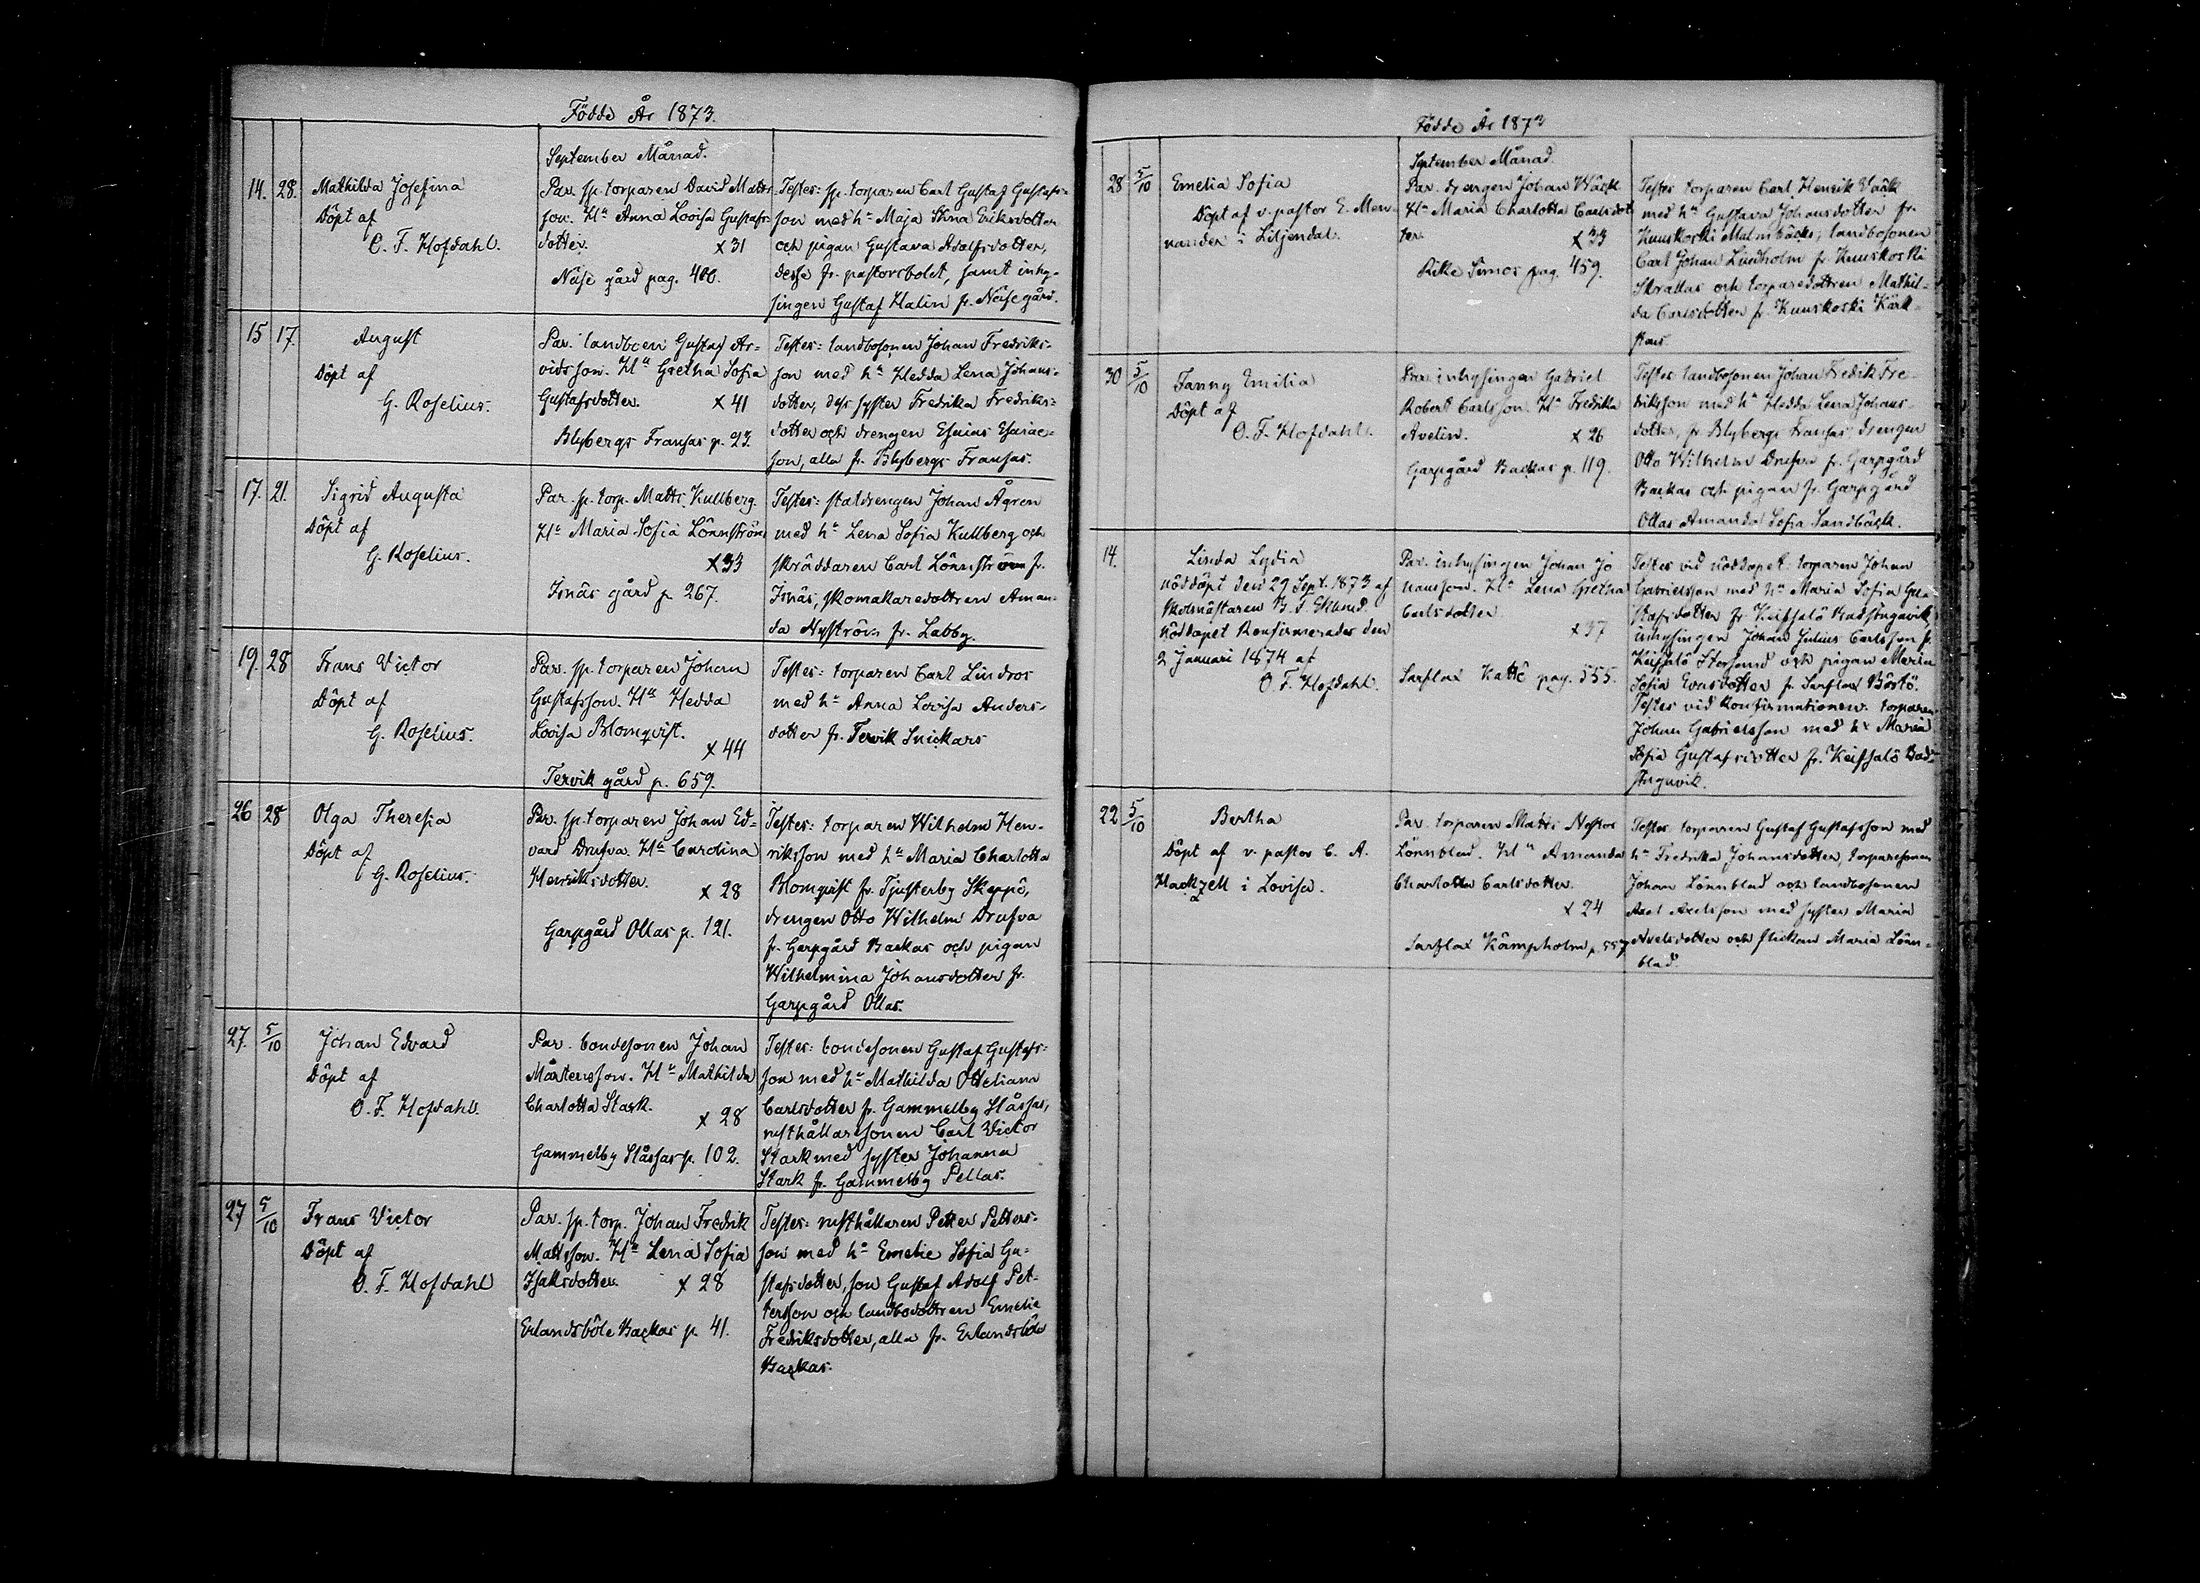 Födde År 1873.
September Månad.
14. 28. Mathilda Josefina
Döpt af
O. F. Hofdahl.
Par. sp. torparen David Matts
son. Hu Anna Lovisa Gustafs
dotter. x 31
Näse gård pag. 400.
Testes: sp. torparen Carl Gustaf Gustafs-
son med hu Maja Stina Eriksdotter
och pigan Gustava Adolfsdotter,
desse fr. pastorsbolet, samt inhy-
singen Gustaf Malin fr. Näse gård.
15 17. August
Döpt af
G. Roselius.
Par. landboen Gustaf Ar-
vidsson. Hu Gretha Sofia
Gustafsdotter. x 41
Blybergs Fransas p. 23.
Testes: landbosonen Johan Fredriks-
son med hu Hedda Lena Johans-
dotter, dess syster Fredrika Fredriks-
dotter och drengen Esaias Esaias-
son, alla fr. Blybergs Fransas.
17. 21. Sigrid Augusta
Döpt af
G. Roselius.
Par. sp. torp. Matts Kullberg.
Hu Maria Sofia Lönnström
x 33
Isnäs gård p. 267.
Testes: staldrengen Johan Ågren
med hu Lena Sofia Kullberg och
skräddaren Carl Lönnström fr.
Isnäs, skomakaredottren Aman-
da Nyström fr. Labby.
19. 28 Frans Victor
Döpt af
G. Roselius.
Par. sp. torparen Johan
Gustafsson. Hu Hedda
Lovisa Blomqvist.
x 44
Tervik gård p. 659.
Testes: torparen Carl Lindros
med hu Anna Lovisa Anders-
dotter fr. Tervik Snickars
26 28 Olga Theresia
Döpt af
G. Roselius.
Par. sp. torparen Johan Ed-
vard Drufva. Hu Carolina
Henriksdotter. x 28
Garpgård Ollas p. 121.
Testes: torparen Wilhelm Hen-
riksson med hu Maria Charlotta
Blomqvist fr. Tjusterby Skeppö,
drengen Otto Wilhelm Drufva
fr. Garpgård Backas och pigan
Wilhelmina Johansdotter fr.
Garpgård Ollas.
27. 5/10 Johan Edvard
Döpt af
O. F. Hofdahl.
Par. bondesonen Johan
Mårtensson. Hu Mathilda
Charlotta Stark.
x 28
Gammelby Slåssas p. 102.
Testes: bondesonen Gustaf Gustafs-
son med hu Mathilda Otteliana
Carlsdotter fr. Gammelby Slåssas,
rusthållaresonen Carl Victor
Stark med syster Johanna
Stark fr. Gammelby Pellas.
27 5/10 Frans Victor
Döpt af
O. F. Hofdahl
Par. sp. torp. Johan Fredrik
Mattsson. Hu Lena Sofia
Isaksdotter. x 28
Erlandsböle Backas p. 41.
Testes: rusthållaren Petter Petters-
son med hu Emelie Sofia Gu-
stafsdotter, son Gustaf Adolf Pet-
tersson och landbodottren Emelie
Fredriksdotter, alla fr. Erlandsböle
Backas.
Födde År 1873
September Månad.
28 5/10 Emelia Sofia
Döpt af v. pastor E. Men-
nander i Liljendal.
Par. drengen Johan Wäck
Hu Maria Charlotta Carlsdot
ter. x 33
Rike Simos pag. 459.
Testes torparen Carl Henrik Wäck
med hu Gustava Johansdotter fr.
Kuuskoski Malmbäcks, landbosonen
Carl Johan Lindholm fr. Kuuskoski
Skrallas och torparedottren Mathil-
da Carlsdotter fr. Kuuskoski Kärk-
30 5/10 Fanny Emilia
Döpt af
O. F. Hofdahl.
Par. inhysingen Gabriel
Robert Carlsson. Hu Fredrika
Avelin. x 26
Garpgård Backas p. 119.
Testes landbosonen Johan Fredrik Fre-
driksson med hu Hedda Lena Johans-
dotter, fr. Blybergs Fransas, drengen
Otto Wilhelm Drufva fr. Garpgård
Backas och pigan fr. Garpgård
Ollas Amanda Sofia Sandbäck.
14. Linda Lydia
nöddöpt den 29 Sept. 1873 af
skolmästaren B. F. Eklund.
Nöddopet konfirmerades den
2 Januari 1874 af
O. F. Hofdahl.
Par. inhysingen Johan Jo
hansson. Hu Lena Gretha
Carlsdotter
x 37
Sarflax Kattö pag. 555.
Testes vid nöddopet: torparen Johan
Gabrielsson med hu Maria Sofia Gu-
stafsdotter fr Keipsalö Badstuguvik,
inhysingen Johan Julius Carlsson fr
Keipsalö Storsund och pigan Maria
Sofia dotter fr. Sarflax Böstö.
Testes vid konfirmationen: torparen
Johan Gabrielsson med hu Maria
Sofia Gustafsdotter fr. Keipsalö Bad-
stuguvik.
22 5/10 Bertha
Döpt af v. pastor C. A.
Hackzell i Lovisa.
Par. torparen Matts Nestor
Lönnblad. Hu Amanda
Charlotta Carlsdotter.
x 24
Sarflax Kämpholm p. 557
Testes torparen Gustaf Gustafsson med
hu Fredrika Johansdotter, torparesonen
Johan Lönnblad och landbosonen
Axel Axelsson med syster Maria
Axelsdotter och flickan Maria Lönn-
blad.